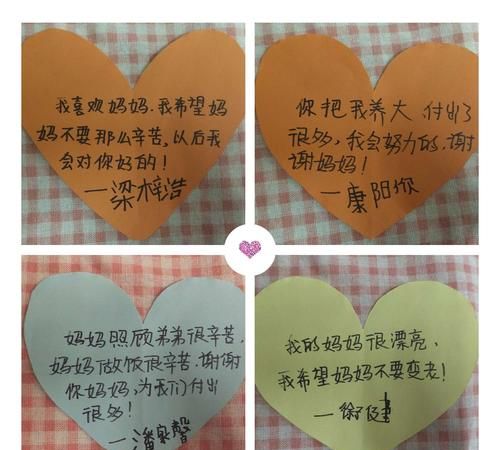 我喜欢妈妈.我希望妈
妈不要那么辛苦,以后我
会对你好的!
—梁梓浩
你把我养大 付出了
很多,我会努力的,谢
谢妈妈!
—康阳
妈妈照顾弟弟很辛苦,
妈妈做饭很辛苦.谢谢
你妈妈,为我们付出
很多!
—潘
我的妈妈很漂亮,
我希望妈妈不要变老!
—徐